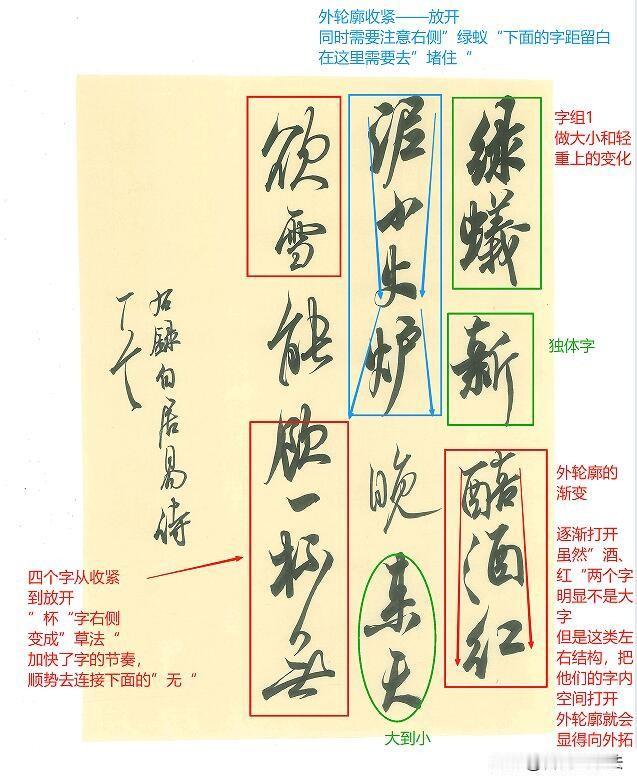 外轮廓收紧——放开
同时需要注意右侧”绿蚁“下面的字距留白
在这里需要去”堵住“
字组1
做大小和轻
重上的变化
独体字
外轮廓的
渐变
逐渐打开
虽然”酒、
红“两个字
明显不是大
字
但是这类左
右结构，把
他们的字内
空间打开
外轮廓就会
显得向外拓
绿蟻新醅酒红
泥小火炉晚来天
欲雪能饮一杯无
右録白居易诗
四个字从收紧
到放开
”杯“字右侧
变成”草法“
加快了字的节奏，
顺势去连接下面的”无“
大到小